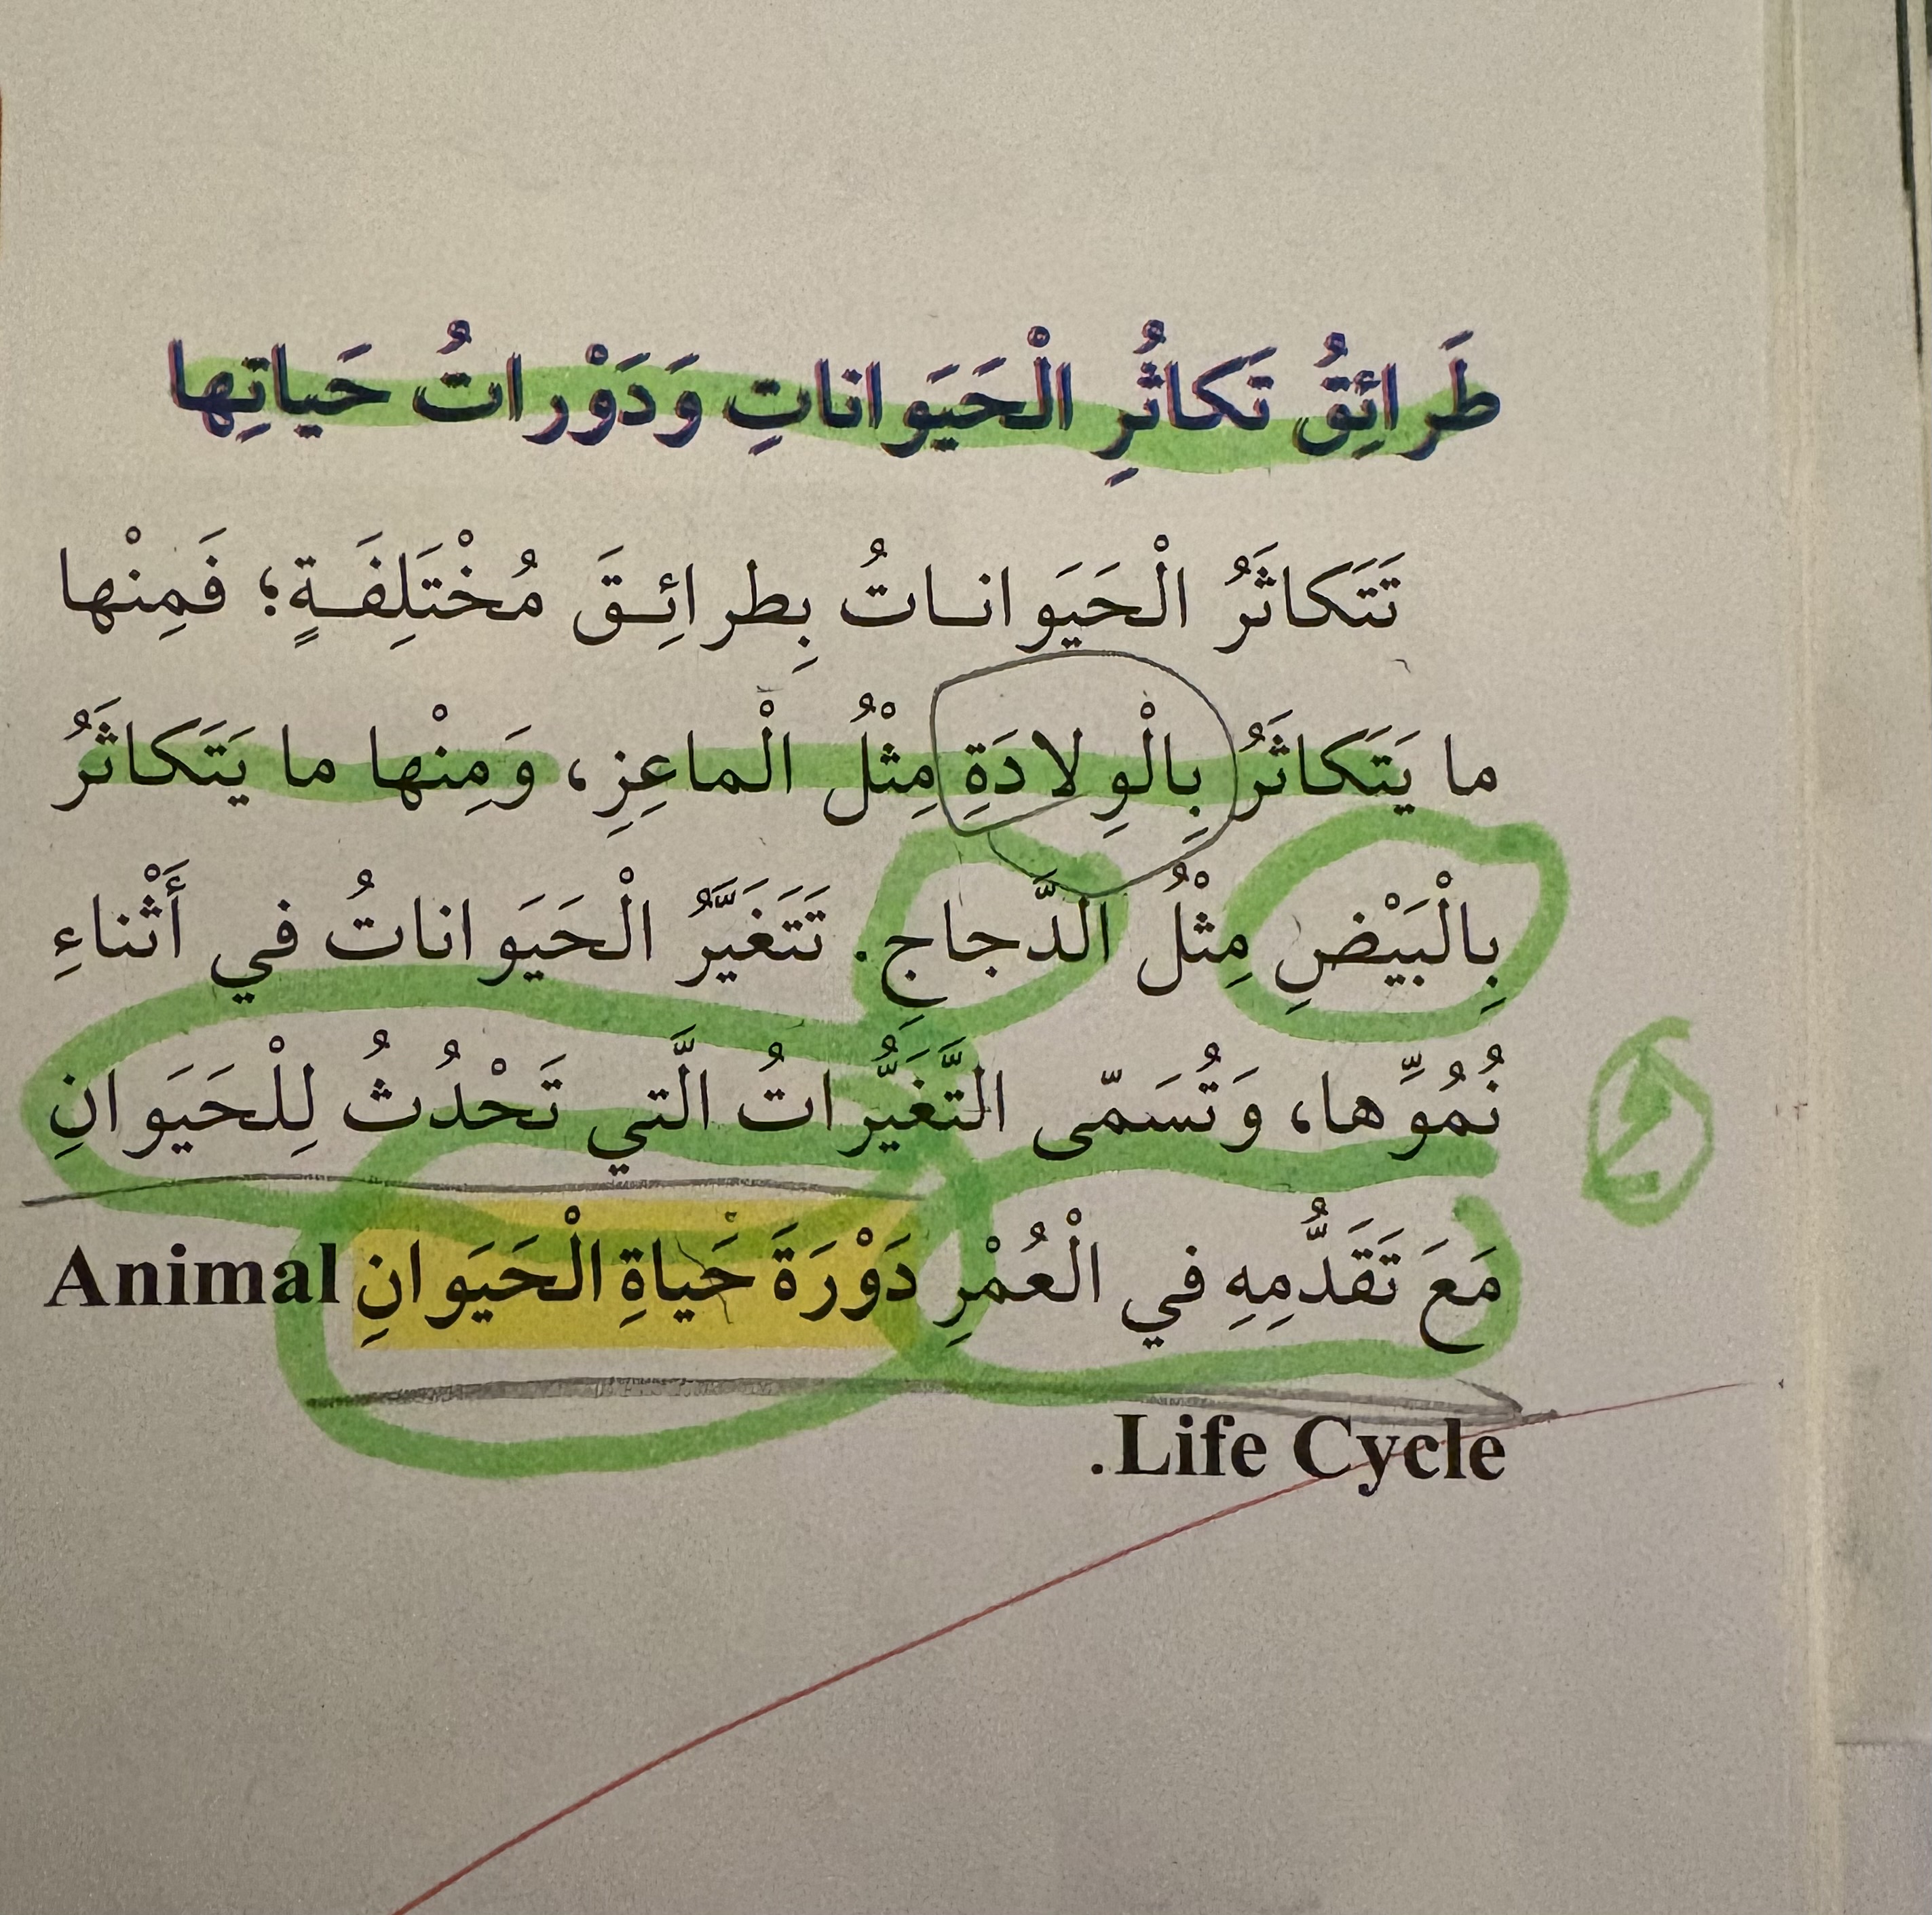 طَرائِقُ تَكاثُرِ الْحَيَواناتِ وَدَوْراتُ حَياتِها
تَتَكاثَرُ الْحَيَوانـاتُ بِطرائِـقَ مُخْتَلِفَـةٍ؛ فَمِنْها
ما يَتَكاثَرُ بِالْوِلادَةِ مِثْلُ الْماعِزِ، وَمِنْها ما يَتَكاثَرُ
بِالْبَيْضِ مِثْلُ الدَّجاجِ. تَتَغَيَّرُ الْحَيَواناتُ في أَثْناءِ
نُمُوِّها، وَتُسَمّى التَّغَيُّراتُ الَّتي تَحْدُثُ لِلْحَيَوانِ
مَعَ تَقَدُّمِهِ في الْعُمْرِ دَوْرَةَ حَياةِ الْحَيَوانِ Animal
Life Cycle.